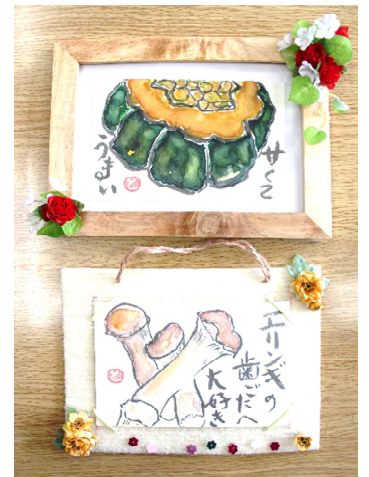 甘くて
うまい
エリンギの
歯ごたへ
大好き